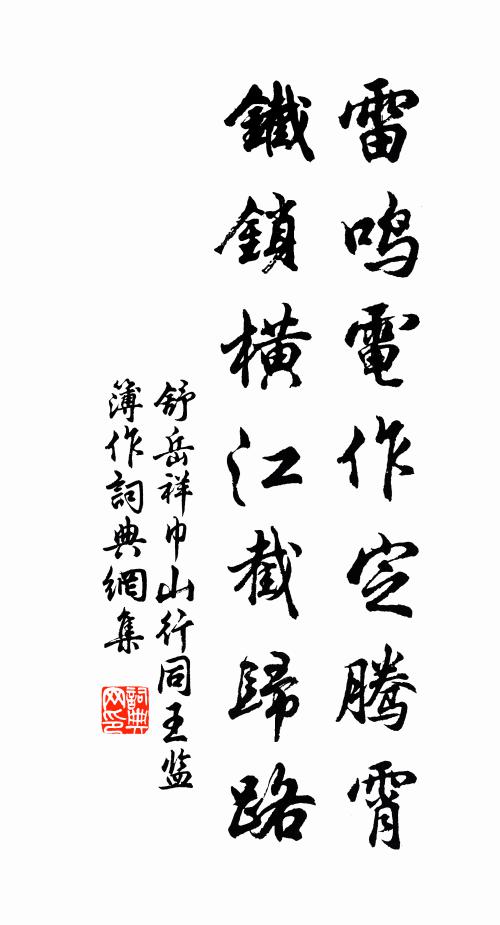 雷鸣電作定騰霄
鐵鎖橫江截歸路
舒岳祥巾山行同王监
簿作詞典網集
詞典
网印